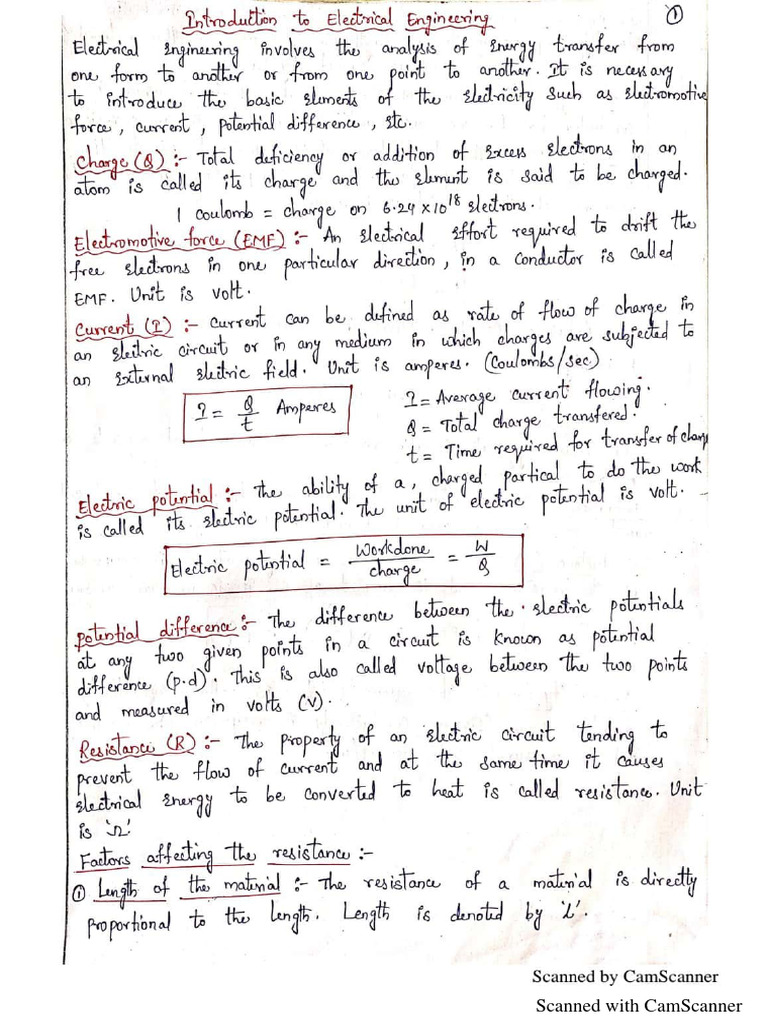 Introduction to Electrical Engineering
①
Electrical Engineering involves the analysis of Energy transfer from
one form to another or from one point to another. It is necessary
to introduce the basic Elements of the Electricity such as Electromotive
force, current, potential difference, etc.
Charge (Q) :- Total deficiency or addition of Excess Electrons in an
atom is called its charge and the Element is said to be charged.
1 coulomb = charge on 6.24 × 10¹⁸ Electrons.
Electromotive force (EMF) :- An Electrical Effort required to drift the
free Electrons in one particular direction, in a conductor is called
EMF. Unit is volt.
Current (I) :- Current can be defined as rate of flow of charge in
an Electric circuit or in any medium in which charges are subjected to
an External Electric field. Unit is amperes. (Coulombs/sec)
I = Q/t Amperes
I = Average current flowing.
Q = Total charge transfered.
t = Time required for transfer of charge
Electric potential :- The ability of a, charged partical to do the work
is called its Electric potential. The unit of electric potential is volt.
Electric potential = Workdone/charge = W/Q
potential difference :- The difference between the Electric potentials
at any two given points in a circuit is known as potential
difference (p.d). This is also called voltage between the two points
and measured in volts (V).
Resistance (R) :- The property of an Electric circuit tending to
prevent the flow of current and at the same time it causes
Electrical Energy to be converted to heat is called resistance. Unit
is 'Ω'
Factors affecting the resistance :-
① Length of the material :- The resistance of a material is directly
proportional to the length. Length is denoted by 'L'.
Scanned by CamScanner
Scanned with CamScanner